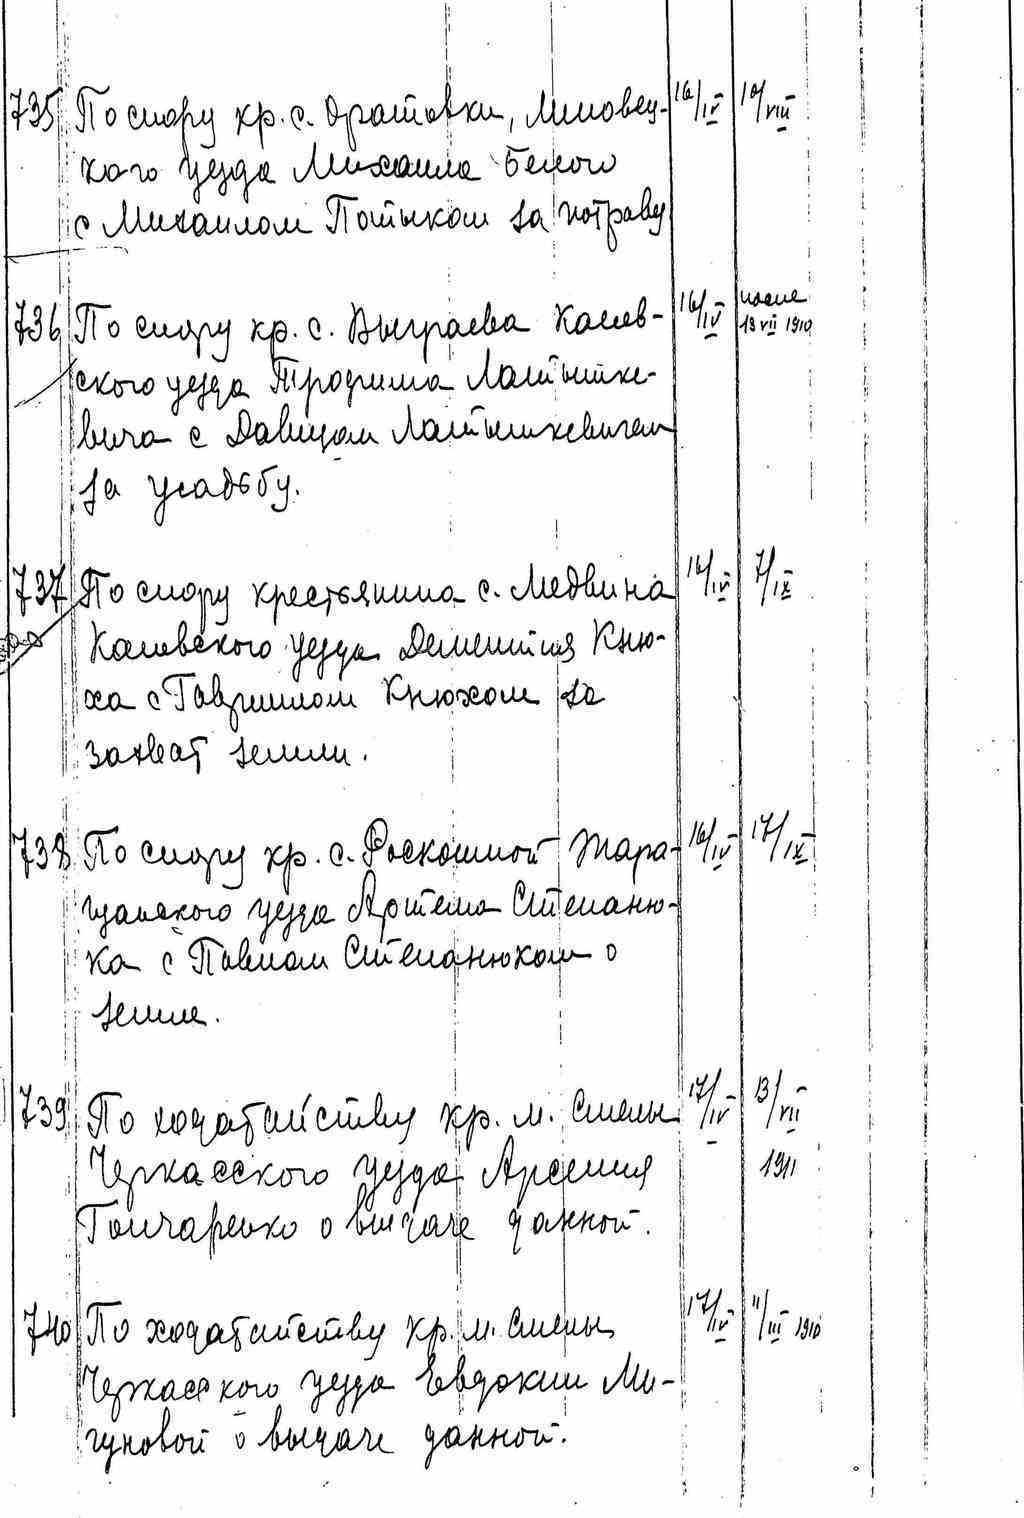 735 По спору кр. с. Оратовки, Липовец- 16/IV 10/VIII
кого уезда Михаила Белого
с Михаилом Потыком за потраву
736 По спору кр. с. Выграева Канев- 16/IV после
19 VII 1910
ского уезда Трофима Латышке-
вича с Давидом Латышкевичем
за усадьбу.
737 По спору крестьянина с. Медвина 16/IV 7/IX
Каневского уезда Дементия Кню-
ха с Гавриилом Кнюхом за
захват земли.
738 По спору кр. с. Роскошной Тара- 16/IV 17/IX
щанского уезда Артема Степаню-
ка с Павлом Степанюком о
земле.
739 По ходатайству кр. м. Смелы 17/IV 13/VII
Черкасского уезда Арсения 1911
Гончаренко о выдаче данной.
740 По ходатайству кр. м. Смелы 17/IV 11/III 1910
Черкасского уезда Евдокии Ми-
гуновой о выдаче данной.